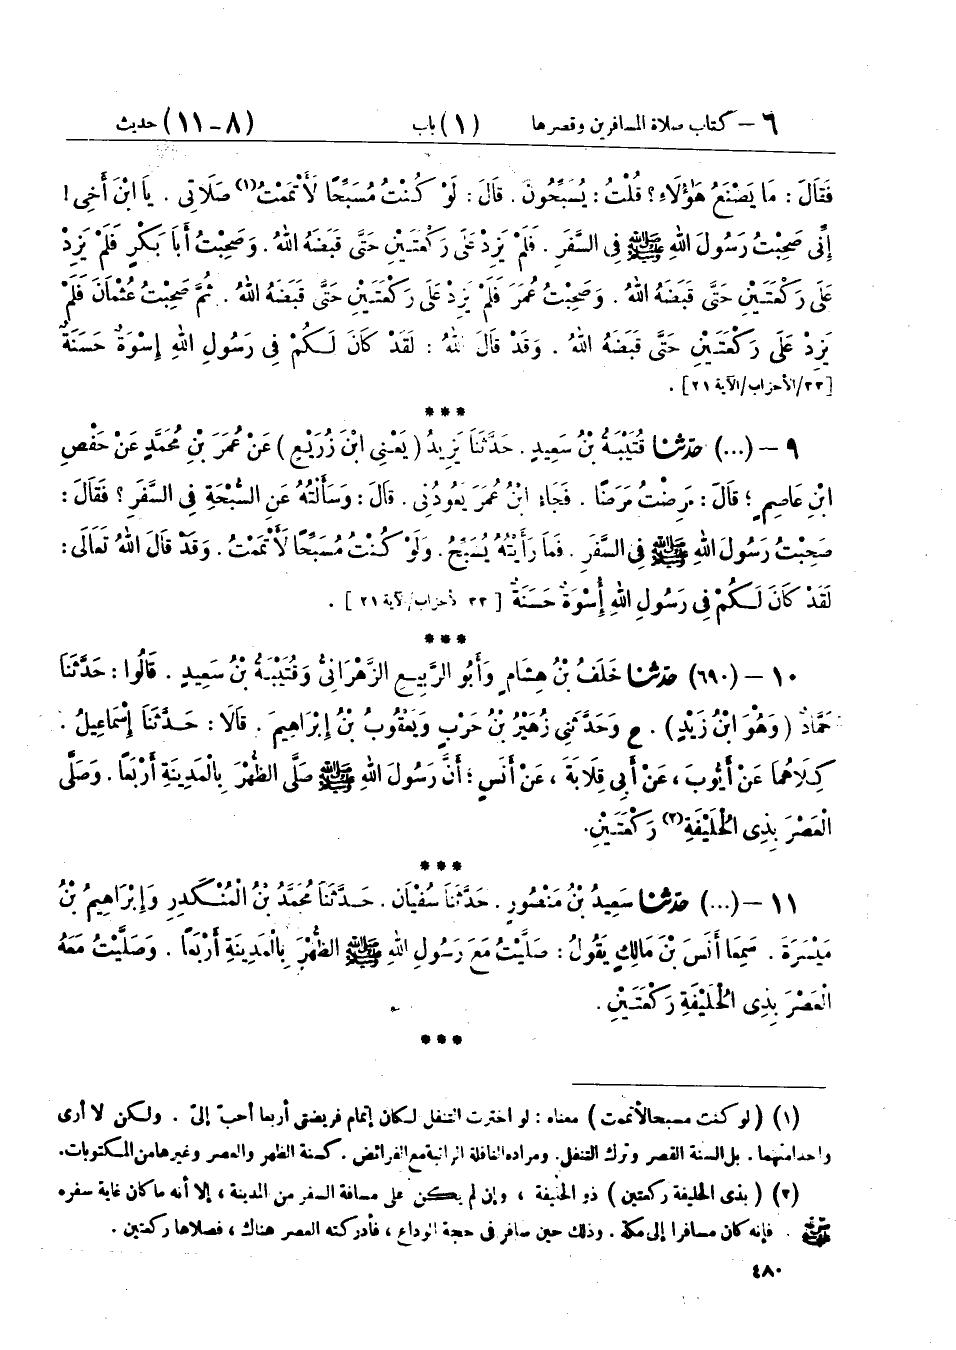 ٦ - كتاب صلاة المسافرين وقصرها (١) باب (٨-١١) حديث
فَقَالَ : مَا يَصْنَعُ هَٰؤُلَاءِ؟ قُلْتُ : يُسَبِّحُونَ . قَالَ : لَوْ كُنْتُ مُسَبِّحًا لَأَتْمَمْتُ(١) صَلَاتِى . يَا ابْنَ أَخِى !
إِنِّى صَحِبْتُ رَسُولَ اللهِ ﷺ فِى السَّفَرِ . فَلَمْ يَزِدْ عَلَى رَكْعَتَيْنِ حَتَّى قَبَضَهُ اللهُ . وَصَحِبْتُ أَبَا بَكْرٍ فَلَمْ يَزِدْ
عَلَى رَكْعَتَيْنِ حَتَّى قَبَضَهُ اللهُ . وَصَحِبْتُ عُمَرَ فَلَمْ يَزِدْ عَلَى رَكْعَتَيْنِ حَتَّى قَبَضَهُ اللهُ . ثُمَّ صَحِبْتُ عُثْمَانَ فَلَمْ
يَزِدْ عَلَى رَكْعَتَيْنِ حَتَّى قَبَضَهُ اللهُ . وَقَدْ قَالَ اللهُ : لَقَدْ كَانَ لَكُمْ فِى رَسُولِ اللهِ إِسْوَةٌ حَسَنَةٌ
[٣٣/الأحزاب/الآية ٢١] .
***
٩ - (...) حدثنا قُتَيْبَةُ بْنُ سَعِيدٍ . حَدَّثَنَا يَزِيدُ (يَعْنِى ابْنَ زُرَيْعٍ) عَنْ عُمَرَ بْنِ مُحَمَّدٍ عَنْ حَفْصِ
ابْنِ عَاصِمٍ ؛ قَالَ : مَرِضْتُ مَرَضًا . فَجَاءَ ابْنُ عُمَرَ يَعُودُنِى . قَالَ : وَسَأَلْتُهُ عَنِ السُّبْحَةِ فِى السَّفَرِ ؟ فَقَالَ :
صَحِبْتُ رَسُولَ اللهِ ﷺ فِى السَّفَرِ . فَمَا رَأَيْتُهُ يُسَبِّحُ . وَلَوْ كُنْتُ مُسَبِّحًا لَأَتْمَمْتُ . وَقَدْ قَالَ اللهُ تَعَالَى :
لَقَدْ كَانَ لَكُمْ فِى رَسُولِ اللهِ أُسْوَةٌ حَسَنَةٌ [ ٣٣ /الأحزاب/الآية ٢١ ] .
***
١٠ - (٦٩٠) حدثنا خَلَفُ بْنُ هِشَامٍ وَأَبُو الرَّبِيعِ الزَّهْرَانِىُّ وَقُتَيْبَةُ بْنُ سَعِيدٍ . قَالُوا : حَدَّثَنَا
حَمَّادٌ (وَهُوَ ابْنُ زَيْدٍ) . ح وَحَدَّثَنِى زُهَيْرُ بْنُ حَرْبٍ وَيَعْقُوبُ بْنُ إِبْرَاهِيمَ . قَالَا : حَدَّثَنَا إِسْمَاعِيلُ .
كِلَاهُمَا عَنْ أَيُّوبَ ، عَنْ أَبِى قِلَابَةَ ، عَنْ أَنَسٍ ؛ أَنَّ رَسُولَ اللهِ ﷺ صَلَّى الظُّهْرَ بِالْمَدِينَةِ أَرْبَعًا . وَصَلَّى
الْعَصْرَ بِذِى الْحُلَيْفَةِ(٢) رَكْعَتَيْنِ.
***
١١ - (...) حدثنا سَعِيدُ بْنُ مَنْصُورٍ . حَدَّثَنَا سُفْيَانُ . حَدَّثَنَا مُحَمَّدُ بْنُ الْمُنْكَدِرِ وَإِبْرَاهِيمُ بْنُ
مَيْسَرَةَ . سَمِعَا أَنَسَ بْنَ مَالِكٍ يَقُولُ : صَلَّيْتُ مَعَ رَسُولِ اللهِ ﷺ الظُّهْرَ بِالْمَدِينَةِ أَرْبَعًا . وَصَلَّيْتُ مَعَهُ
الْعَصْرَ بِذِى الْحُلَيْفَةِ رَكْعَتَيْنِ .
***
(١) (لو كنت مسبحا لأتممت) معناه : لو اخترت التنفل لكان إتمام فريضتى أربعا أحب إلىّ . ولكن لا أرى
واحدا منهما . بل السنة القصر وترك التنفل. ومراده النافلة الراتبة مع الفرائض . كسنة الظهر والعصر وغيرها من المكتوبات.
(٢) (بذى الحليفة ركعتين) ذو الحليفة ، وإن لم يكن على مسافة السفر من المدينة ، إلا أنه ما كان غاية سفره
ﷺ . فإنه كان مسافرا إلى مكة . وذلك حين سافر فى حجة الوداع ، فأدركته العصر هناك ، فصلاها ركعتين .
٤٨٠